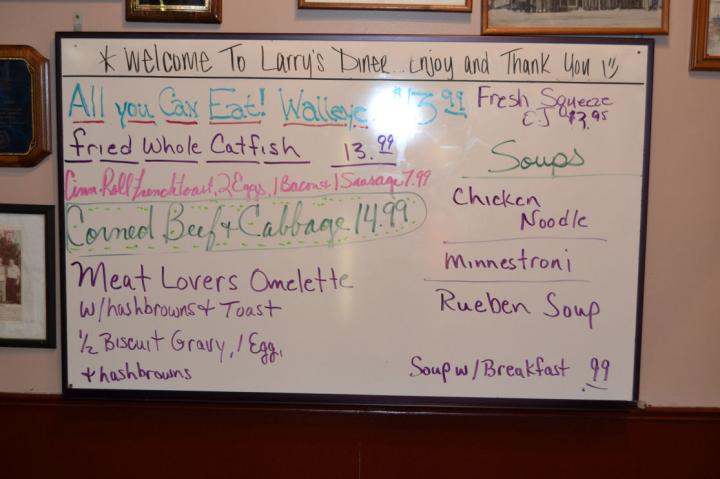 * Welcome To Larry's Diner... Enjoy and Thank You !
All you Can Eat! Walleye $13.99
Fried Whole Catfish 13.99
Cinn Roll French toast, 2 Eggs, 1 Bacon & 1 Sausage 7.99
Corned Beef & Cabbage 14.99
Meat Lovers Omelette
w/hashbrowns & Toast
1/2 Biscuit Gravy, 1 Egg,
& hashbrowns
Fresh Squeeze
OJ $3.95
Soups
Chicken
Noodle
Minnestroni
Rueben Soup
Soup w/Breakfast .99